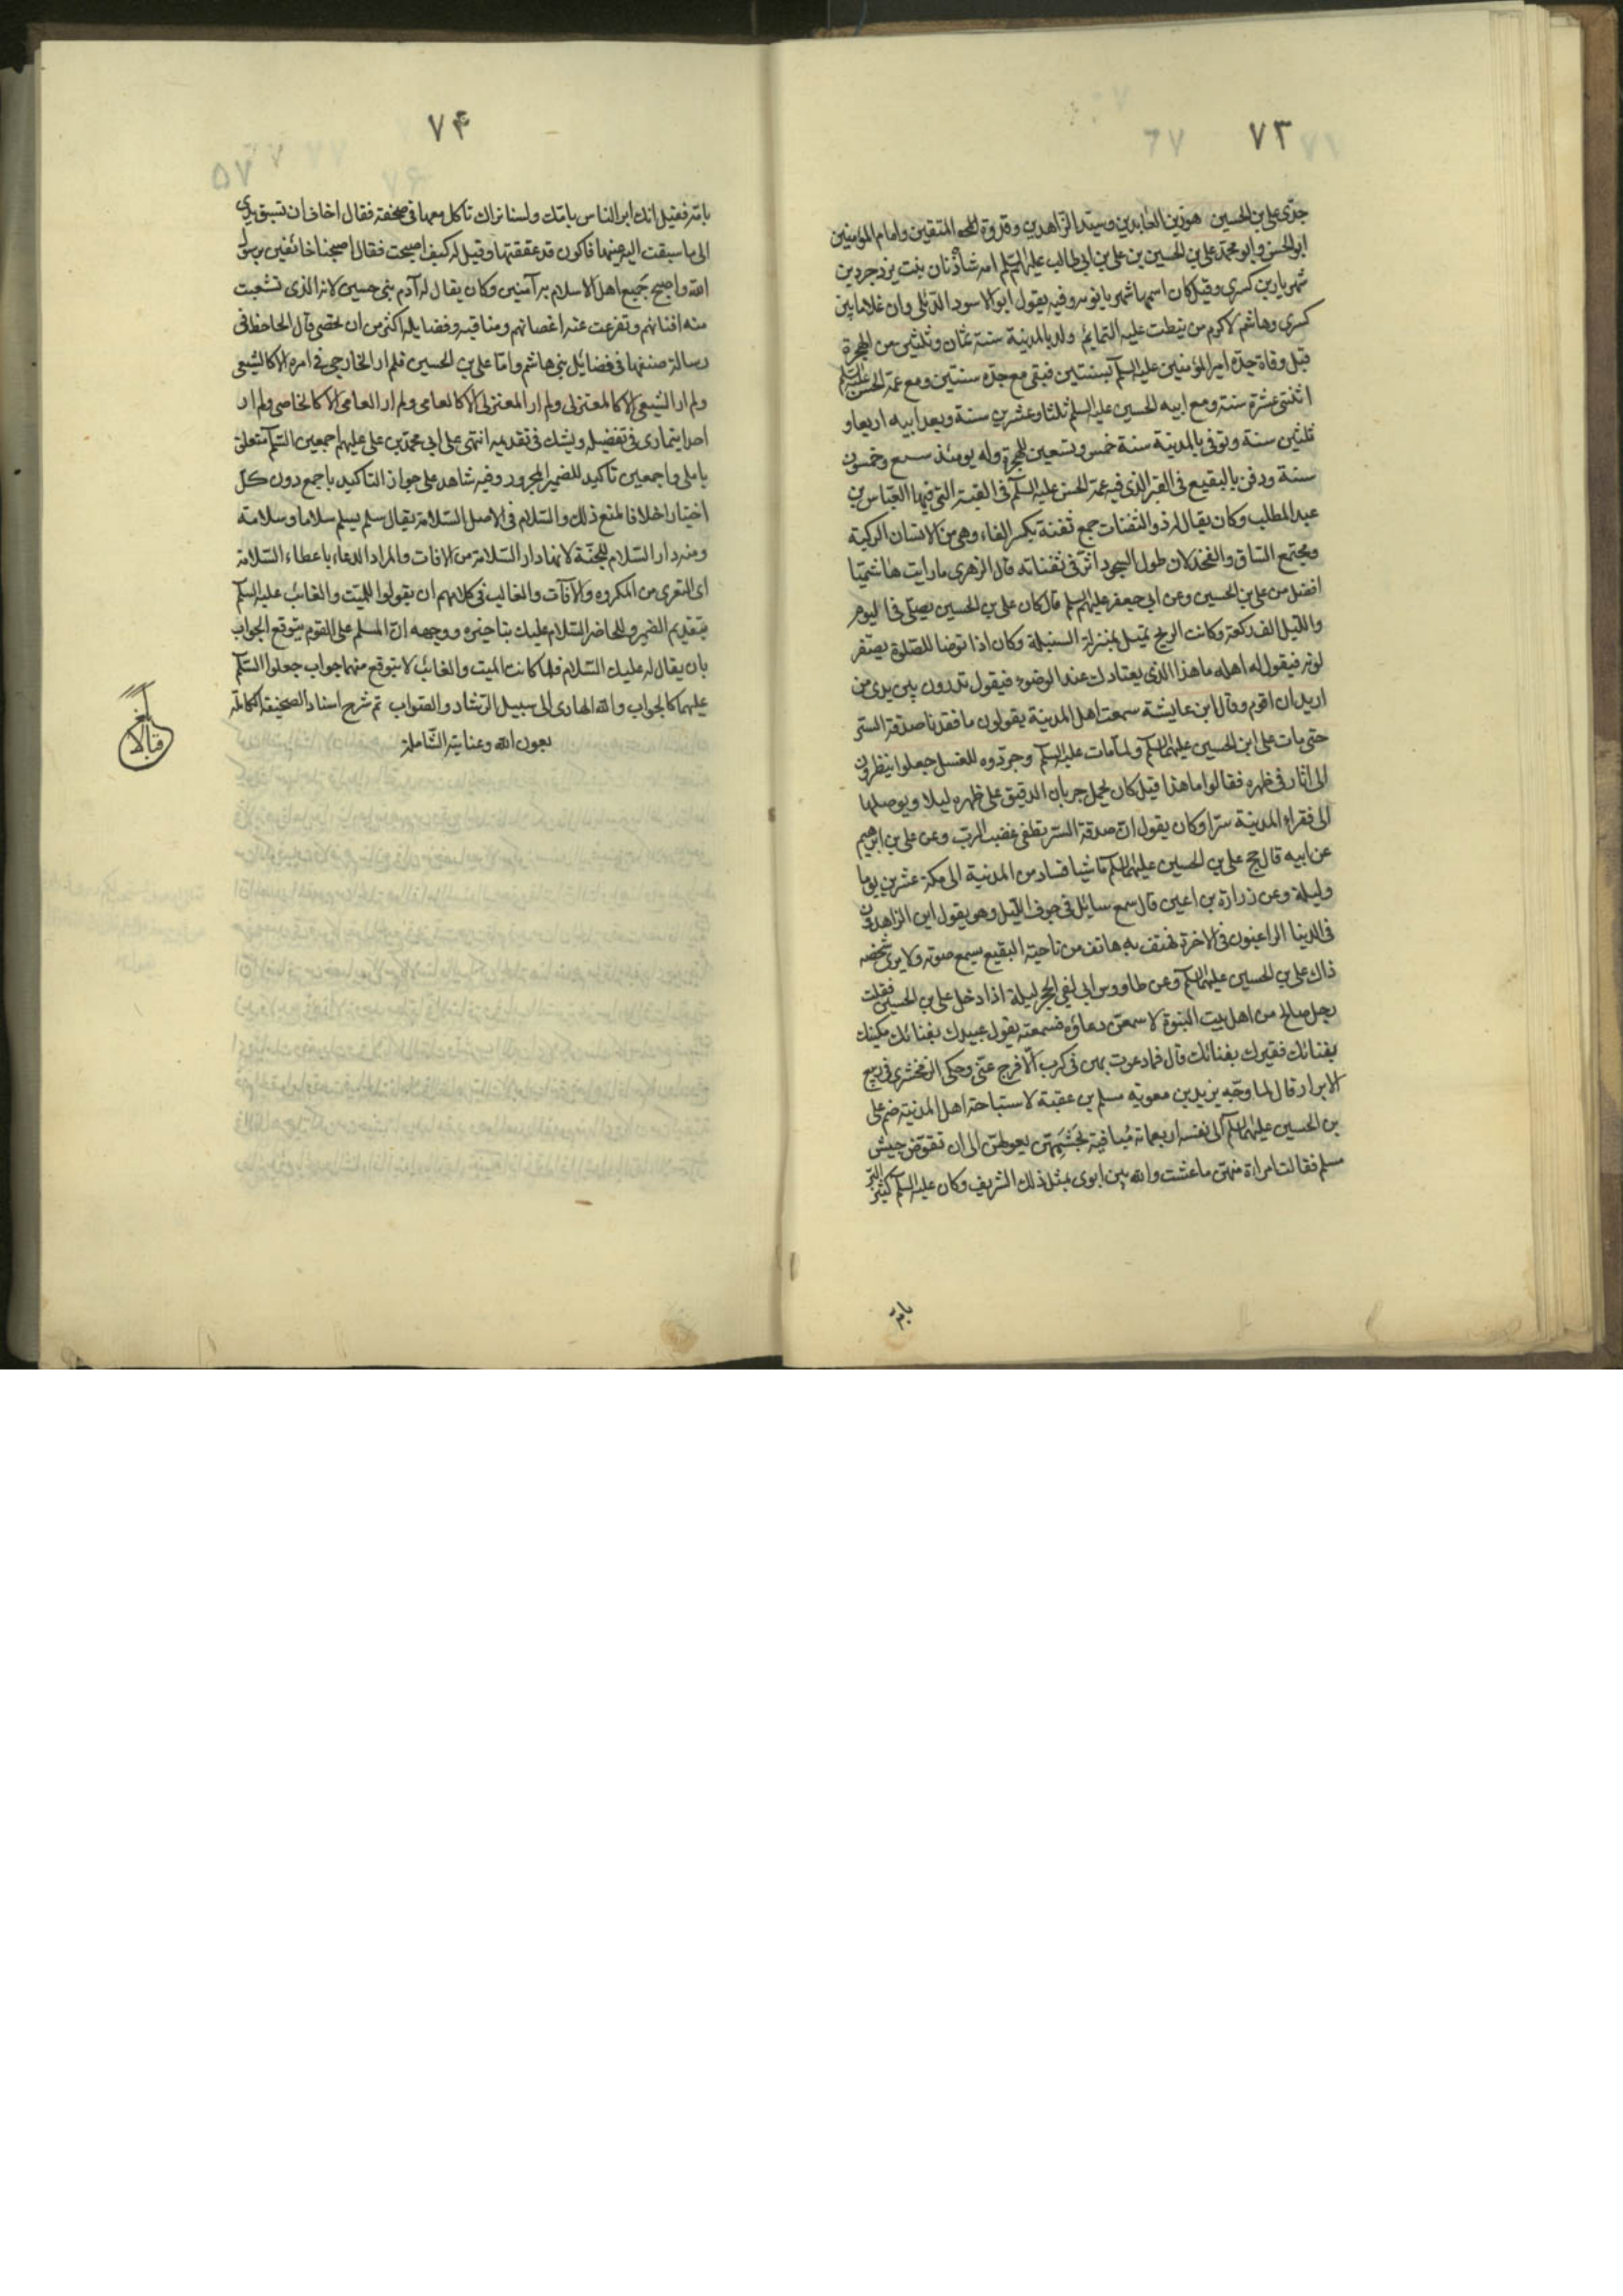 ٧٣
جدّى على بن الحسين هو زين العابدين وسيّد الزاهدين وقدوة المتقين وامام المؤمنين
ابو الحسن وابو محمّد على بن الحسين بن على بن ابى طالب عليهم السّلم امه شاه زنان بنت يزدجرد بن
شهريار بن كسرى وقيل كان اسمها شهربانويه وفيه يقول ابو الاسود الدئلى وان غلاما بين
كسرى وهاشم لاكرم من نيطت عليه التمايم ولد بالمدينة سنة ثمان وثلثين من الهجرة
قبل وفاة جدّه امير المؤمنين عليه السلم بسنتين فبقى مع جدّه سنتين ومع عمّه الحسن عليه السّلم
اثنتى عشرة سنة ومع ابيه الحسين عليه السلم ثلثا وعشرين سنة وبعد ابيه اربعا و
ثلثين سنة وتوفى بالمدينة سنة خمس وتسعين للهجرة وله يومئذ سبع وخمسون
سنة ودفن بالبقيع فى القبر الذى فيه عمّه الحسن عليه السلم فى القبة التى فيها العبّاس بن
عبد المطلب وكان يقال له ذو الثفنات جمع ثفنة بكسر الفاء وهى من الانسان الركبة
ومجتمع الساق والفخذ لان طول السجود اثر فى ثفناته قال الزهرى ما رايت هاشميّا
افضل من على بن الحسين وعن ابى جعفر عليهم السلم قال كان على بن الحسين يصلّى فى اليوم
والليل الف ركعة وكانت الريح تميل بمنزلة السنبلة وكان اذا توضا للصلوة يصفر
لونه فيقول له اهله ما هذا الذى يعتادك عند الوضوء فيقول تدرون بين يدى من
اريد ان اقوم وقال ابن عايشة سمعت اهل المدينة يقولون ما فقدنا صدقة السّر
حتى مات على ابن الحسين عليهما السلم ولما مات عليه السلم وجرّدوه للغسل جعلوا ينظرون
الى اثار فى ظهره فقالوا ما هذا قيل كان يحمل جربان الدقيق على ظهره ليلا ويوصلها
الى فقراء المدينة سرّا وكان يقول انّ صدقة السّر تطفى غضب الرب وعن على بن ابرهيم
عن ابيه قال حج على بن الحسين عليهما السلم ماشيا فسار من المدينة الى مكة عشرين يوما
وليلة وعن زرارة بن اعين قال سمع سايل فى جوف الليل وهو يقول اين الزاهدون
فى الدنيا الراغبون فى الاخرة فهتف به هاتف من ناحية البقيع يسمع صوته ولا يرى شخصه
ذاك على بن الحسين عليهما السلم وعن طاووس انى لفى الحجر ليلة اذا دخل على بن الحسين فقلت
رجل صالح من اهل بيت النبوة لاسمعنّ دعاؤه فسمعته يقول عبيدك بفنائك مسكينك
بفنائك فقيرك بفنائك قال فما دعوت بهن فى كرب الّا فرج عنّى وحكى الزمخشرى فى ربيع
الابرار قال لما وجّه يزيد بن معوية مسلم بن عقبة لاستباحة اهل المدينة ضم على
بن الحسين عليهما السلم الى نفسه اربعمائة منافية بحشمهنّ يعولهنّ الى ان تقوّض جيش
مسلم فقالت امراة منهنّ ما عشت والله بين ابوى بمثل ذلك الشريف وكان عليه السلم كثير البرّ
بامّه
٧۴
بامّه فقيل انك ابر الناس بامّك ولسنا نراك تاكل معها فى صحفة فقال اخاف ان تسبق يدى
الى ما سبقت اليه عينها فاكون قد عققتها وقيل له كيف اصبحت فقال اصبحنا خائفين برسول
الله واصبح جميع اهل الاسلام به آمنين وكان يقال له آدم بنى حسين لانه الذى تشعبت
منه افنانهم وتفرعت عنه اغصانهم ومناقبه وفضايله اكثر من ان تحصى قال الحافظ فى
رسالة صنفها فى فضايل بنى هاشم وامّا على بن الحسين فلم ار الخارجى فى امره الا كالشيعى
ولم ار الشيعى الا كالمعتزلى ولم ار المعتزلى الا كالعامى ولم ار العامى الا كالخاصى ولم ار
احدا يتمارى فى تفضيله ويشك فى تقديمه انتهى على ابى محمّد بن على عليهم اجمعين السّلم متعلق
باملى واجمعين تاكيد للضمير المجرور وفيه شاهد على جواز التاكيد باجمع دون كلّ
اختيارا خلافا لمنع ذلك والسّلام فى الاصل السّلامة يقال سلم يسلم سلاما وسلامة
ومنه دار السّلام للجنّة لانها دار السّلامة من الافات والمراد الدعاء باعطاء السّلامة
اى التعرى من المكروه والآفات والغالب فى كلامهم ان يقولوا للميّت والغائب عليه السلم
بتقديم الضمير وللحاضر السّلام عليك بتاخيره ووجهه انّ المسلم على القوم يتوقع الجواب
بان يقال له عليك السّلام فلما كانت الميت والغائب لا يتوقع منهما جواب جعلوا السّلم
عليهما كالجواب والله الهادى الى سبيل الرّشاد والصّواب تم شرح اسناد الصّحيفة الكاملة
بعون الله وعنايته الشّاملة
بلغ
قبالا